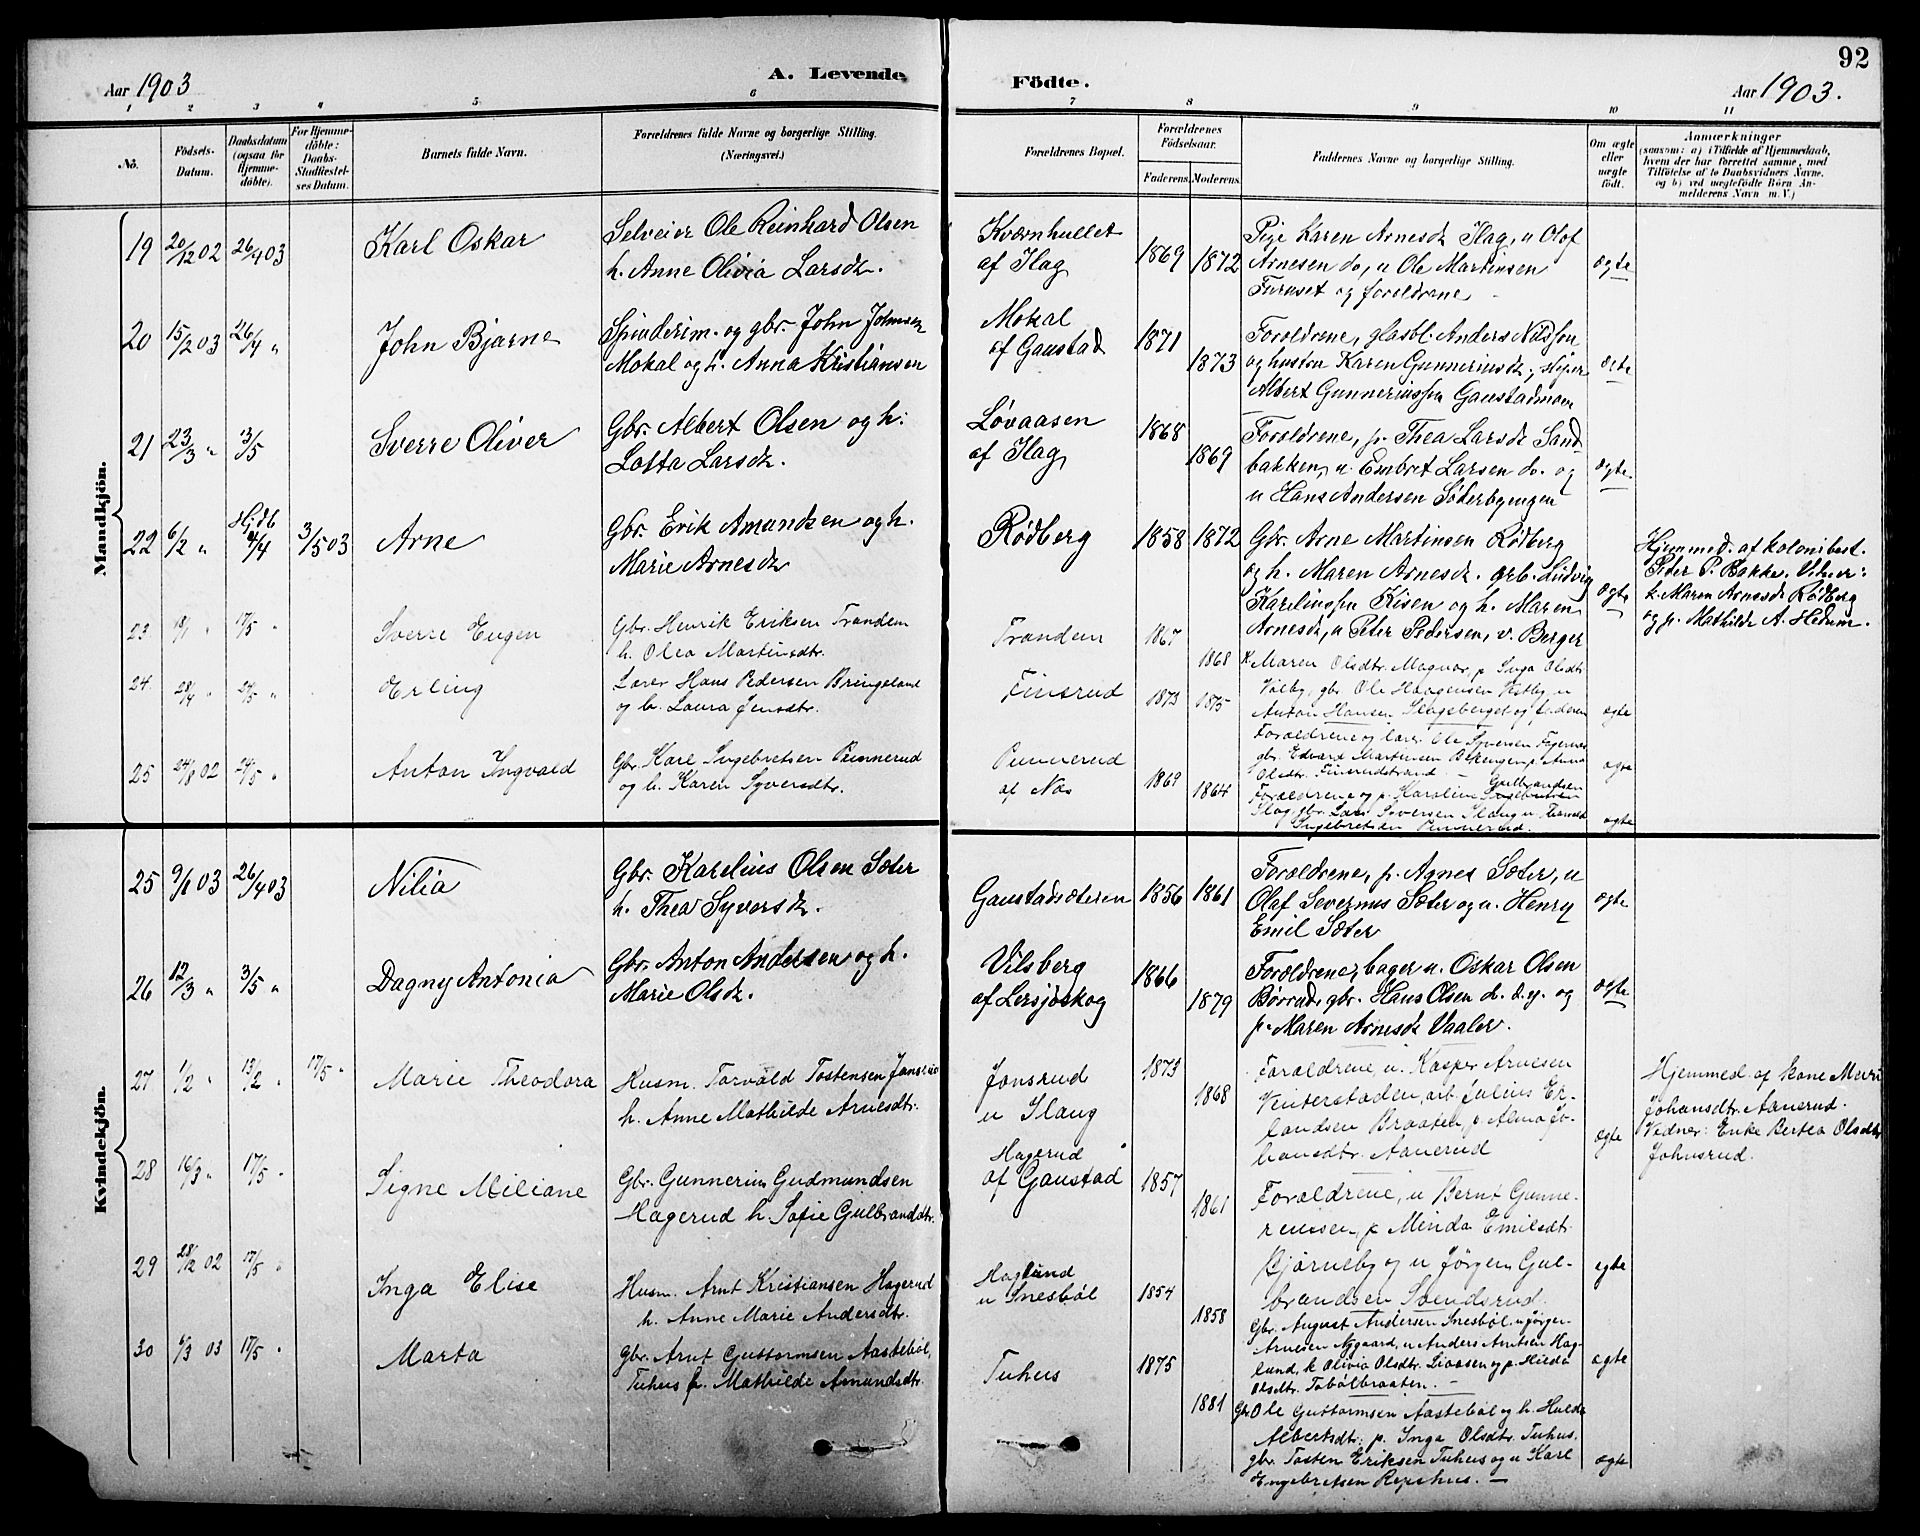 92
Aar 1903
A. Levende
Födte.
Aar 1903.
1 2 3 4 5 6 7 8 9 10 11
No.
Födsels-Datum.
Daabsdatum (ogsaa for Hjemmedöbte).
For Hjemmedöbte: Daabs-Stadfæstelses Datum.
Barnets fulde Navn.
Forældrenes fulde Navne og borgerlige Stilling. (Næringsvei.)
Forældrenes Bopæl.
Forældrenes Födselsaar.
Faderens. Moderens.
Faddernes Navne og borgerlige Stilling.
Om ægte eller uægte födt.
Anmærkninger
(saasom: a) i Tilfælde af Hjemmedaab,
hvem der har forrettet samme, med
Tilföielse af to Daabsvidners Navne.
og b) ved uægtefödte Börn An-
melderens Navn m. V.)
Mandkjön.
19 20/12 02 26/4 03 Karl Oskar
Selveier Ole Reinhard Olsen
h. Anne Olivia Larsdr.
Kværnhullet
af Ilag
1869 1872
Pige Karen Arnesdr Ilag, u Olof
Arnesen do, u Ole Martinsen
Furuset og forældrene
ægte
20 15/2 03 26/4 " John Bjarne
Spinderim. og gbr. John Johnsen
Mokal og h. Anna Kristiansen
Mokal
af Gaustad
1871 1873
Forældrene, glasbl. Anders Nilssen
og hustru Karen Gunneriusdr,
Albert Gunneriussen Gaustadmoen
ægte
21 23/3 " 3/5 Sverre Oliver
Gbr. Albert Olsen og h:
Lotta Larsdr.
Løvaasen
af Ilag
1868 1869
Forældrene, p. Thea Larsdr Sand-
bakken, u. Embret Larsen do. og
u Hans Andersen Söderbyengen
ægte
22 6/2 " Hjdb 4/4 3/5 03 Arne
Gbr. Erik Amundsen og h.
Marie Arnesdr
Rødberg
1858 1872
Gbr. Arne Martinsen Rødberg
og h. Maren Arnesdr. arb. Ludvig
Karelinssen Kisen og h. Maren
Arnesdr, u Peter Pedersen, v. Berger
ægte
Hjemmed. af kolonibest.
Peder P. Bakke. Vidner:
k. Maren Arnesdr Rødberg
og p. Mathilde A. Hedum.
23 18/1 " 17/5 " Sverre Eugen
Gbr. Henrik Eriksen Trandem
h. Olea Martinsdtr.
Trandem
1867 1868
K Maren Olsdtr. Magnor, p Inga Olsdtr.
Volby, gbr. Ole Haagensen Vestby u
Anton Hansen Slagsberget og faderen
ægte
24 28/4 " 24/5 " Erling
Lærer Hans Pedersen Bringeland
og h. Laura Jensdtr.
Finsrud
1873 1875
Forældrene og lærer Ole Syversen Fagernes
gbr. Edvard Martinsen p. Anna
Olsdtr. Finsrudstrand
ægte
25 24/8 02 24/5 " Anton Ingvald
Gbr. Karl Ingebretsen Punnerud
og h. Karen Syversdtr.
Punnerud
af Nos
1863 1864
Forældrene og p. Karoline Gulbrandsen
Ilag, gbr. Lars Syversen Ilaug u
Ingebretsen Punnerud.
ægte
Kvindekjön.
25 9/1 03 26/4 03 Nilia
Gbr. Karelius Olsen Sæter
h. Thea Syversdr.
Gaustadsæteren
1856 1861
Forældrene, p. Agnes Sæter, u
Olaf Severinus Sæter og u. Henry
Emil Sæter
ægte
26 12/3 " 3/5 " Dagny Antonia
Gbr. Anton Andersen og h.
Marie Olsdr.
Vilsberg
af Lersjøskog
1866 1879
Forældrene, bager u. Oskar Olsen
Børrud, gbr. Hans Olsen d. d. y. og
p. Maren Arnesdr Vaaler.
ægte
27 1/2 " 13/2 " 17/5 " Marie Theodora
Husm. Torvald Tostensen Jonsrud
h. Anne Mathilde Arnesdtr.
Jonsrud
u Ilaug
1873 1868
Forældrene, u. Kasper Arnesen
Vinterstaden, arb. Julius Er-
landsen Braaten, p. Alma Jo-
hansdtr. Aanerud
ægte
Hjemmed. af kone Mari
Johansdtr. Aanerud.
Vidner: Enke Bertea Olsdtr
Johnsrud.
28 16/3 " 17/5 " Signe Miliane
Gbr. Gunnerius Gudmundsen
Hagerud h. Sofie Gulbrandsdtr.
Hagerud
af Gaustad
1857 1861
Forældrene, u Bernt Gunne-
reusen, p Minda Emilsdtr.
Bjørneby og u Jørgen Gul-
brandsen Svendsrud.
ægte
29 28/12 02 17/5 " Inga Elise
Husm. Arnt Kristiansen Hagerud
h. Anne Marie Andersdtr.
Haglund
u Snesbøl
1854 1858
Gbr. August Andersen Snesbøl, u Jørgen
Arnesen Nygaard, u Anders Arntsen Hag-
lund, k Olivia Olsdtr. Liaasen og p. Hilda
Olsdtr. Tobølbraaten.
ægte
30 6/3 03 17/5 " Marta
Gbr. Arnt Guttormsen Aastebøl,
Tuhus h. Mathilde Amundsdtr.
Tuhus
1875 1881
Gbr Ole Guttormsen Aastebøl og h. Hulda
Albertsdtr. p. Inga Olsdtr. Tuhus,
gbr. Tosten Eriksen Tuhus og u Karl
Engebretsen Repshus.
ægte